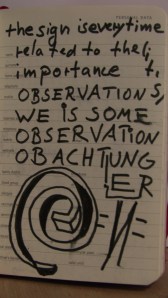 the sign is everytime
related to the
importance t.
OBSERVATIONS,
WE IS SOME
OBSERVATION
OBACHTUNG
ER